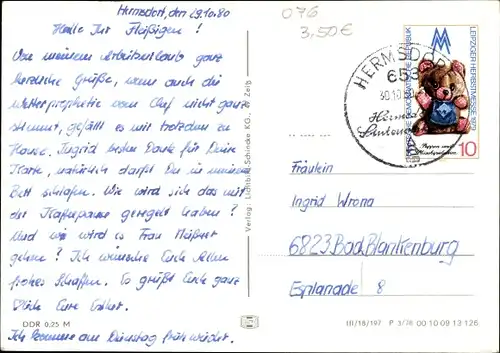 Hermsdorf, den 29.10.80
Hallo Ihr Fleißigen!
Von meinem Arbeitsurlaub ganz
herzliche Grüße, wenn auch die
Wetterprophetie vom Chef nicht ganz
stimmt, gefällt es mir trotzdem zu
Hause. Ingrid besten Dank für Deine
Karte, natürlich darfst Du in meinem
Bett schlafen. Wie wird sich das mit
der Kaffeepause geregelt haben?
Und wie wird es Frau
gehen? Ich wünsche Euch allen
frohes Schaffen. Es grüßt Euch ganz
Eure Esther.
Ich komme am Dienstag früh wieder.
DDR 0,25 M
Verlag: Lichtbild-Schincke KG., Zeitz
076
3,50€
HERMSDORF
653
30.10.80
LEIPZIGER HERBSTMESSE 1979
DEUTSCHE DEMOKRATISCHE REPUBLIK
Puppen und
10
Fräulein
Ingrid Wrona
6823 Bad Blankenburg
Esplanade 8
III/18/197 P 3/78 00 10 09 13 126